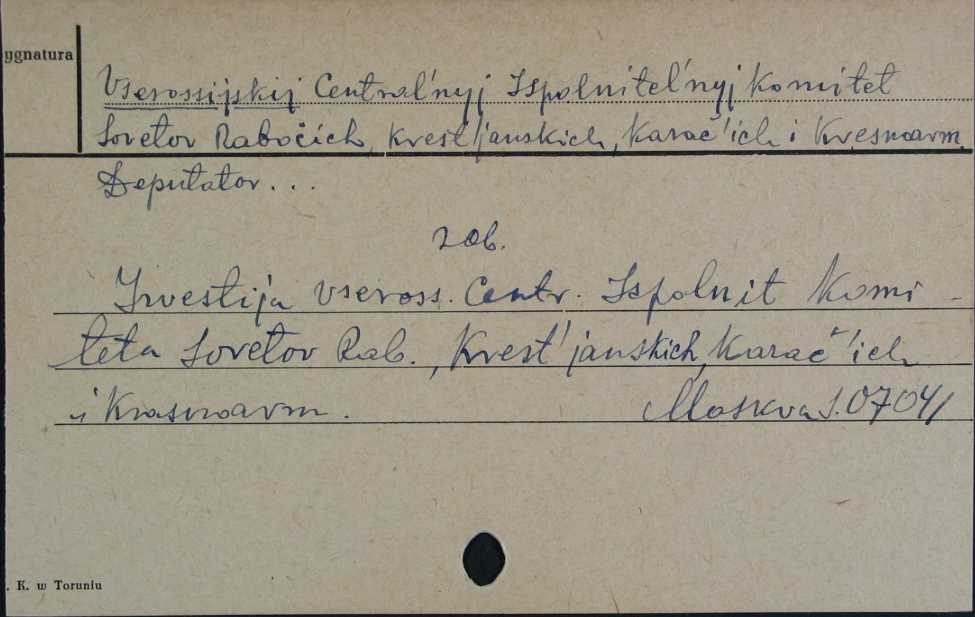 ygnatura
Vserossijskij Central'nyj Ispolnitel'nyj Komitet
Sovetov Rabočich, Krest'janskich, Karač'ich i Kresnoarm.
Deputatov...
zob.
Izvestija vseross. Centr. Ispolnit Komi-
teta Sovetov Rab., Krest'janskich, Karač'ich
i Krasnoarm. Moskva S.0704/
. K. w Toruniu